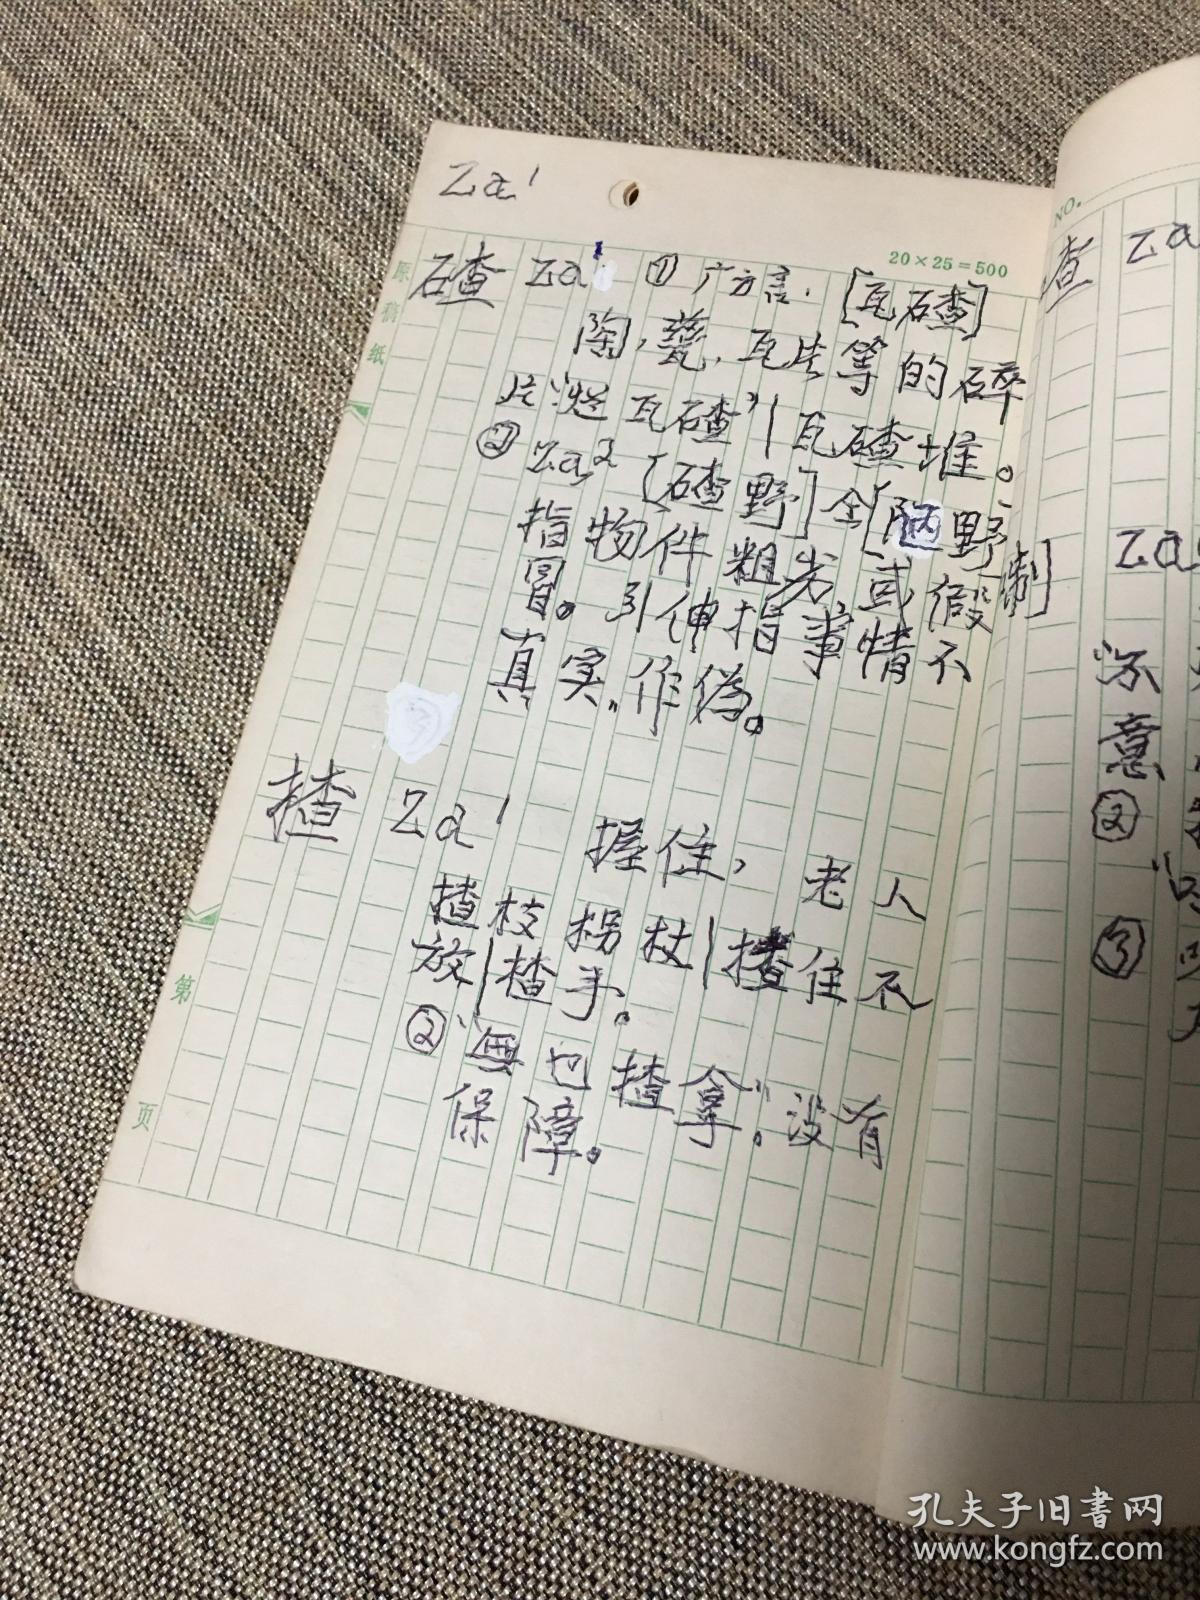 Za¹
20×25=500
碴 Za¹ ① 广方言. [瓦碴]
陶, 甏, 瓦片等的碎
片“烂瓦碴”|瓦碴堆。
② Za² [碴野]仝[陋野]
指物件粗劣或假制
冒。引伸指事情不
真实,作偽。
揸 Za¹ 握住, 老人
揸枝拐杖|揸住不
放|揸手。
② “無乜揸拿”。没有
保障。
原稿纸
第
页
NO.
Za
意
②
③
孔夫子旧書网
www.kongfz.com